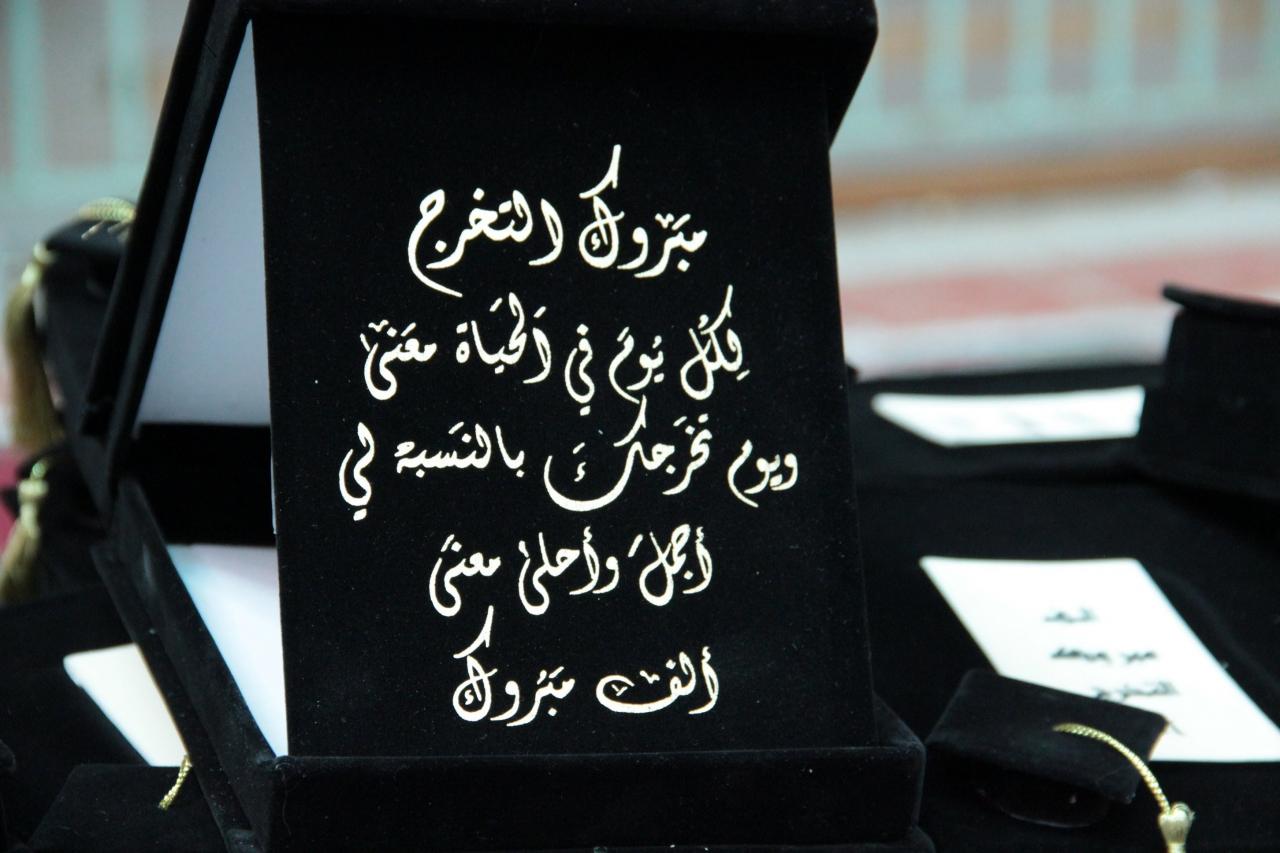 مبروك التخرج
لكل يوم في الحياة معنى
ويوم تخرجك بالنسبه لي
أجمل وأحلى معنى
ألف مبروك
ألف
مبروك
التخرج